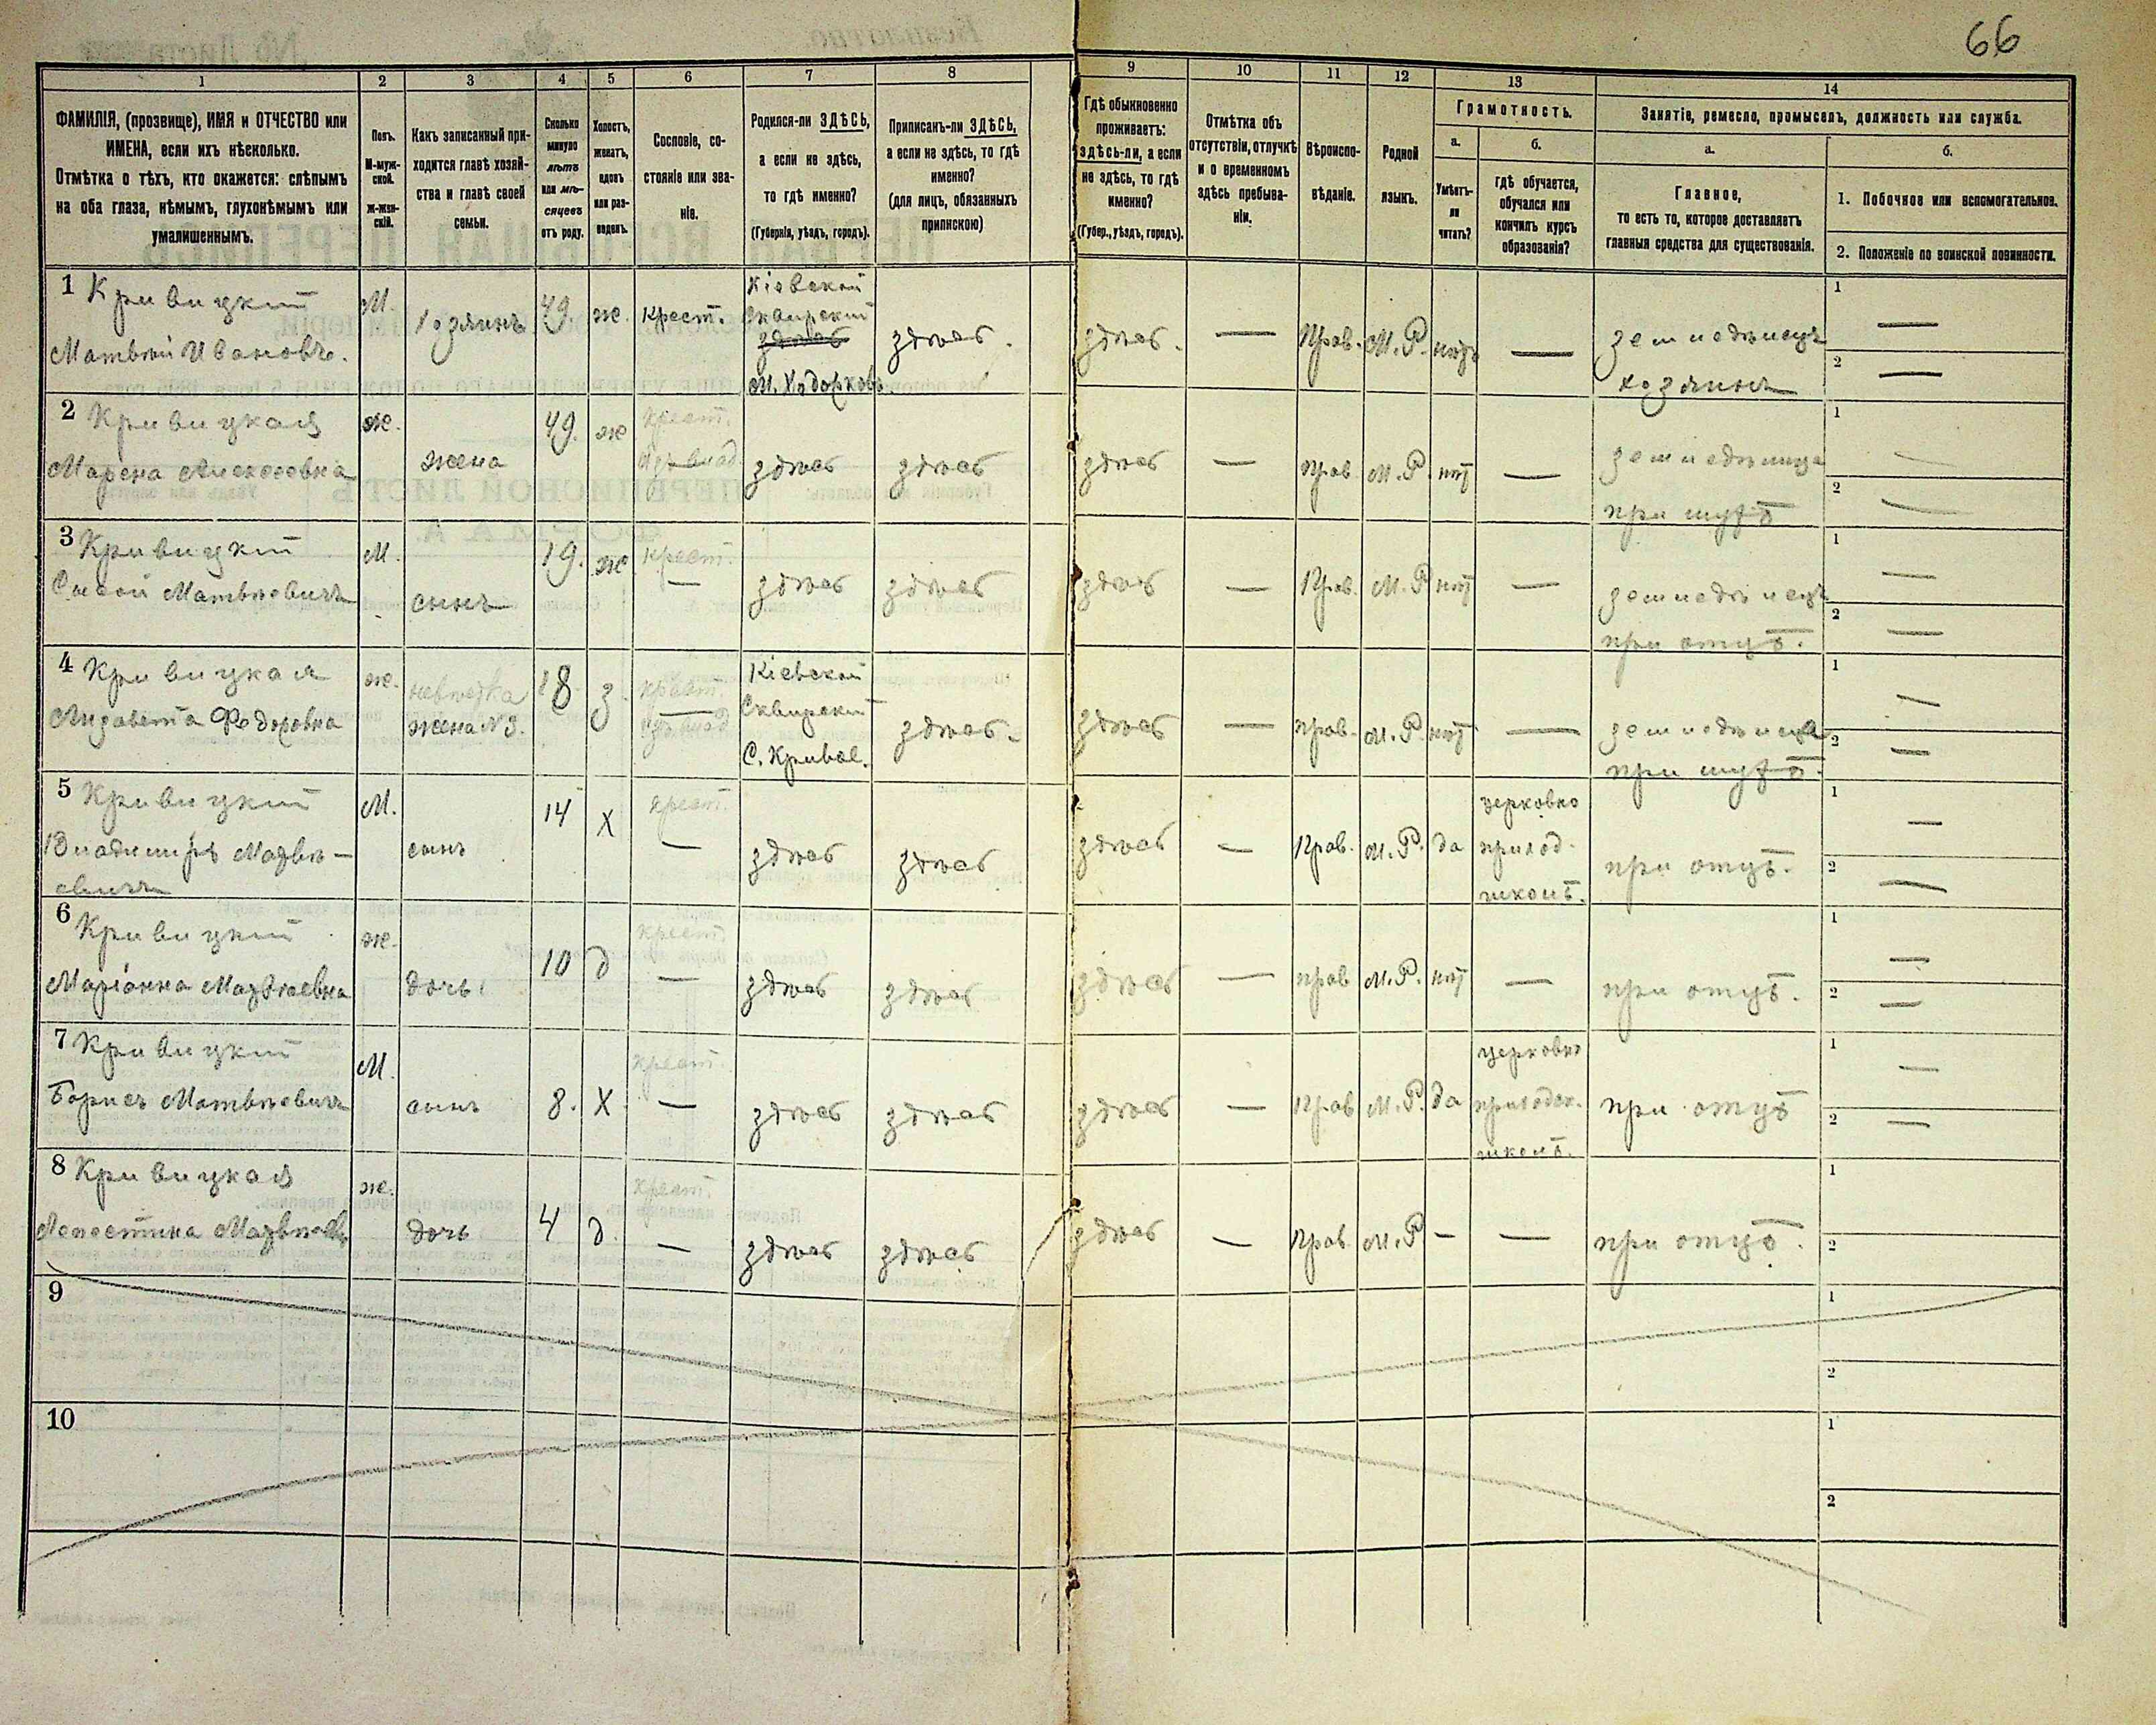 66
1 2 3 4 5 6 7 8 9 10 11 12 13 14
ФАМИЛІЯ, (прозвище), ИМЯ и ОТЧЕСТВО или
ИМЕНА, если ихъ нѣсколько.
Отмѣтка о тѣхъ, кто окажется: слѣпымъ
на оба глаза, нѣмымъ, глухонѣмымъ или
умалишеннымъ.
Полъ.
М-муж-
ской.
Ж-жен-
скій.
Какъ записанный при-
ходится главѣ хозяй-
ства и главѣ своей
семьи.
Сколько
минуло
лѣтъ
или мѣ-
сяцевъ
отъ роду.
Холостъ,
женатъ,
вдовъ
или раз-
веденъ.
Сословіе, со-
стояніе или зва-
ніе.
Родился-ли ЗДѢСЬ,
а если не здѣсь,
то гдѣ именно?
(Губернія, уѣздъ, городъ).
Приписанъ-ли ЗДѢСЬ,
а если не здѣсь, то гдѣ
именно?
(для лицъ, обязанныхъ
припискою)
Гдѣ обыкновенно
проживаетъ:
здѣсь-ли, а если
не здѣсь, то гдѣ
именно?
(Губер., уѣздъ, городъ).
Отмѣтка объ
отсутствіи, отлучкѣ
и о временномъ
здѣсь пребыва-
ніи.
Вѣроиспо-
вѣданіе.
Родной
языкъ.
Грамотность.
а.
Умѣетъ-
ли
читать?
б.
гдѣ обучается,
обучался или
кончилъ курсъ
образованія?
Занятіе, ремесло, промыселъ, должность или служба.
а.
Главное,
то есть то, которое доставляетъ
главныя средства для существованія.
б.
1. Побочное или вспомогательное.
2. Положеніе по воинской повинности.
1 Кривицкій
Матвѣй Ивановъ.
М.
Хозяинъ
49
ж.
крест.
Кіевской
Сквирскій
здѣсь
м. Ходорковъ
здѣсь.
здѣсь. —
Прав.
М.Р.
нѣтъ
—
земледѣлецъ
хозяинъ
1 —
2 —
2 Кривицкая
Марена Алексеевна
ж.
жена
49.
ж
крест.
здѣсь
здѣсь
здѣсь —
прав
М.Р.
нѣт
—
земледѣлица
при мужѣ
1 —
2 —
3 Кривицкій
Сысой Матвѣевичъ
М.
сынъ
19.
ж
крест.
—
здѣсь
здѣсь
здѣсь —
Прав.
М.Р
нѣт
—
земледѣлецъ
при отцѣ.
1 —
2 —
4 Кривицкая
Лизавета Федоровна
ж.
невѣстка
жена №3.
18
з.
крест.
Кіевской
Сквирскій
С. Кривое.
здѣсь.
здѣсь —
прав.
М.Р.
нѣт
—
земледѣлица
при мужѣ.
1 —
2 —
5 Кривицкій
Владимиръ Матвѣ-
евичъ
М.
сынъ
14
Х
крест.
—
здѣсь
здѣсь
здѣсь —
Прав.
М.Р.
да
церковно
приход.
школѣ.
при отцѣ.
1 —
2 —
6 Кривицкій
Маріанна Матвѣевна
ж.
дочь
10
д
крест.
—
здѣсь
здѣсь
здѣсь —
прав
М.Р.
нѣт
—
при отцѣ.
1 —
2 —
7 Кривицкій
Борисъ Матвѣевичъ
М.
сынъ
8.
Х
крест.
—
здѣсь
здѣсь
здѣсь —
Прав
М.Р.
да
церковно
приходск.
школѣ.
при отцѣ
1 —
2 —
8 Кривицкая
Матвѣевн
ж.
дочь
4
д.
крест.
—
здѣсь
здѣсь
здѣсь —
Прав.
М.Р
—
—
при отцѣ.
1
2
9
1
2
10
1
2